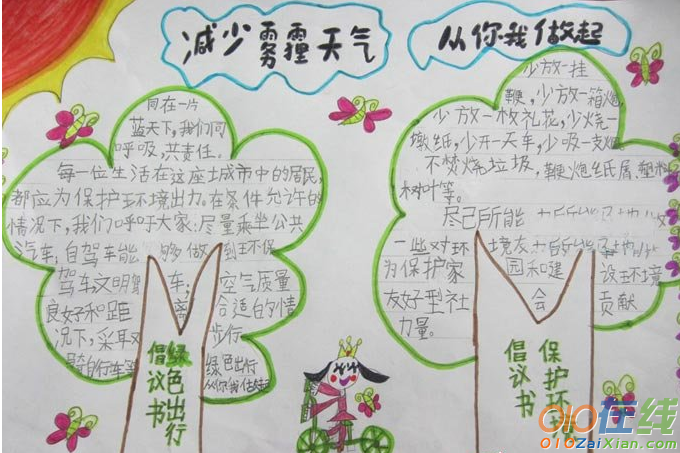 减少雾霾天气
从你我做起
同在一片
蓝天下,我们同
呼吸,共责任。
每一位生活在这座城市中的居民,
都应为保护环境出力。在条件允许的
情况下,我们呼吁大家:尽量乘坐公共
汽车;自驾车能够做到环保
驾车文明驾车;空气质量
良好和距离合适的情
况下,采取步行
骑自行车等绿色出行
从你我做起
绿色出行
倡议书
少放一挂
鞭,少放一箱炮,
少放一枚礼花,少烧一
墩纸,少开一天车,少吸一支烟
不焚烧垃圾,鞭炮纸属,塑料
树叶等。
尽己所能
一些对环境友
为保护家园和建设环境
友好型社会贡献
力量。
保护环境
倡议书
010在线
010ZaiXian.com